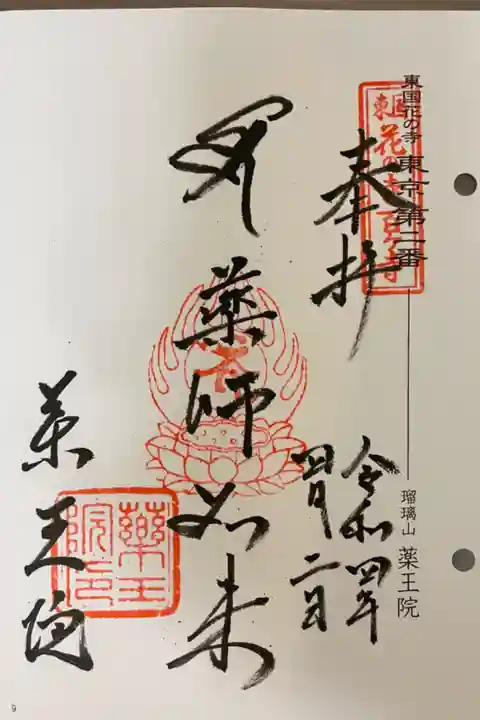 東国花の寺 東京第二番
瑠璃山 薬王院
東国花の寺百ヶ寺
奉拝
令和四年
四月二日
薬師如来
薬王院
薬王
院印
9